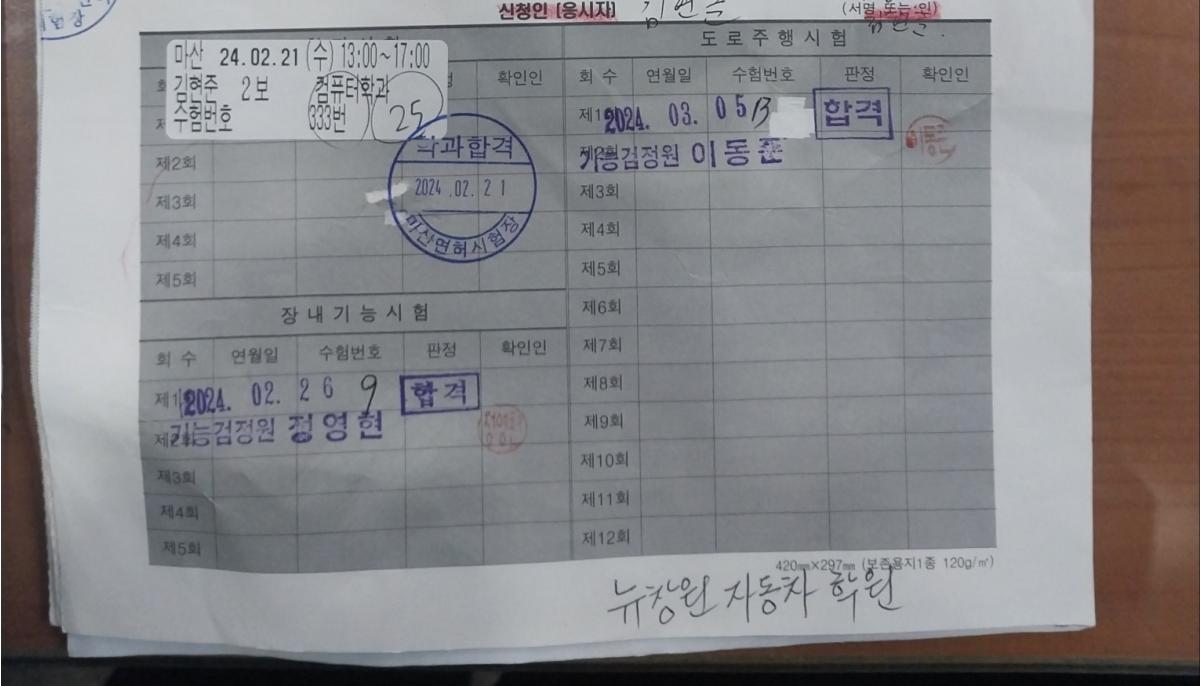 신청인 [응시자] 김현준 (서명 또는 인)
마산 24.02.21 (수) 13:00~17:00
김현준 2보 컴퓨터학과
수험번호 333번 25
확인인
제2회
제3회
제4회
제5회
학과합격
2024.02.21
마산면허시험장
장내기능시험
회 수 연월일 수험번호 판정 확인인
제1 2024. 02. 26 9 합격
제2회 기능검정원 정영현
제3회
제4회
제5회
도로주행시험
회 수 연월일 수험번호 판정 확인인
제1 2024. 03. 05 13 합격
제2회 기능검정원 이동준
제3회
제4회
제5회
제6회
제7회
제8회
제9회
제10회
제11회
제12회
420㎜×297㎜ (보존용지1종 120g/㎡)
뉴창원 자동차 학원